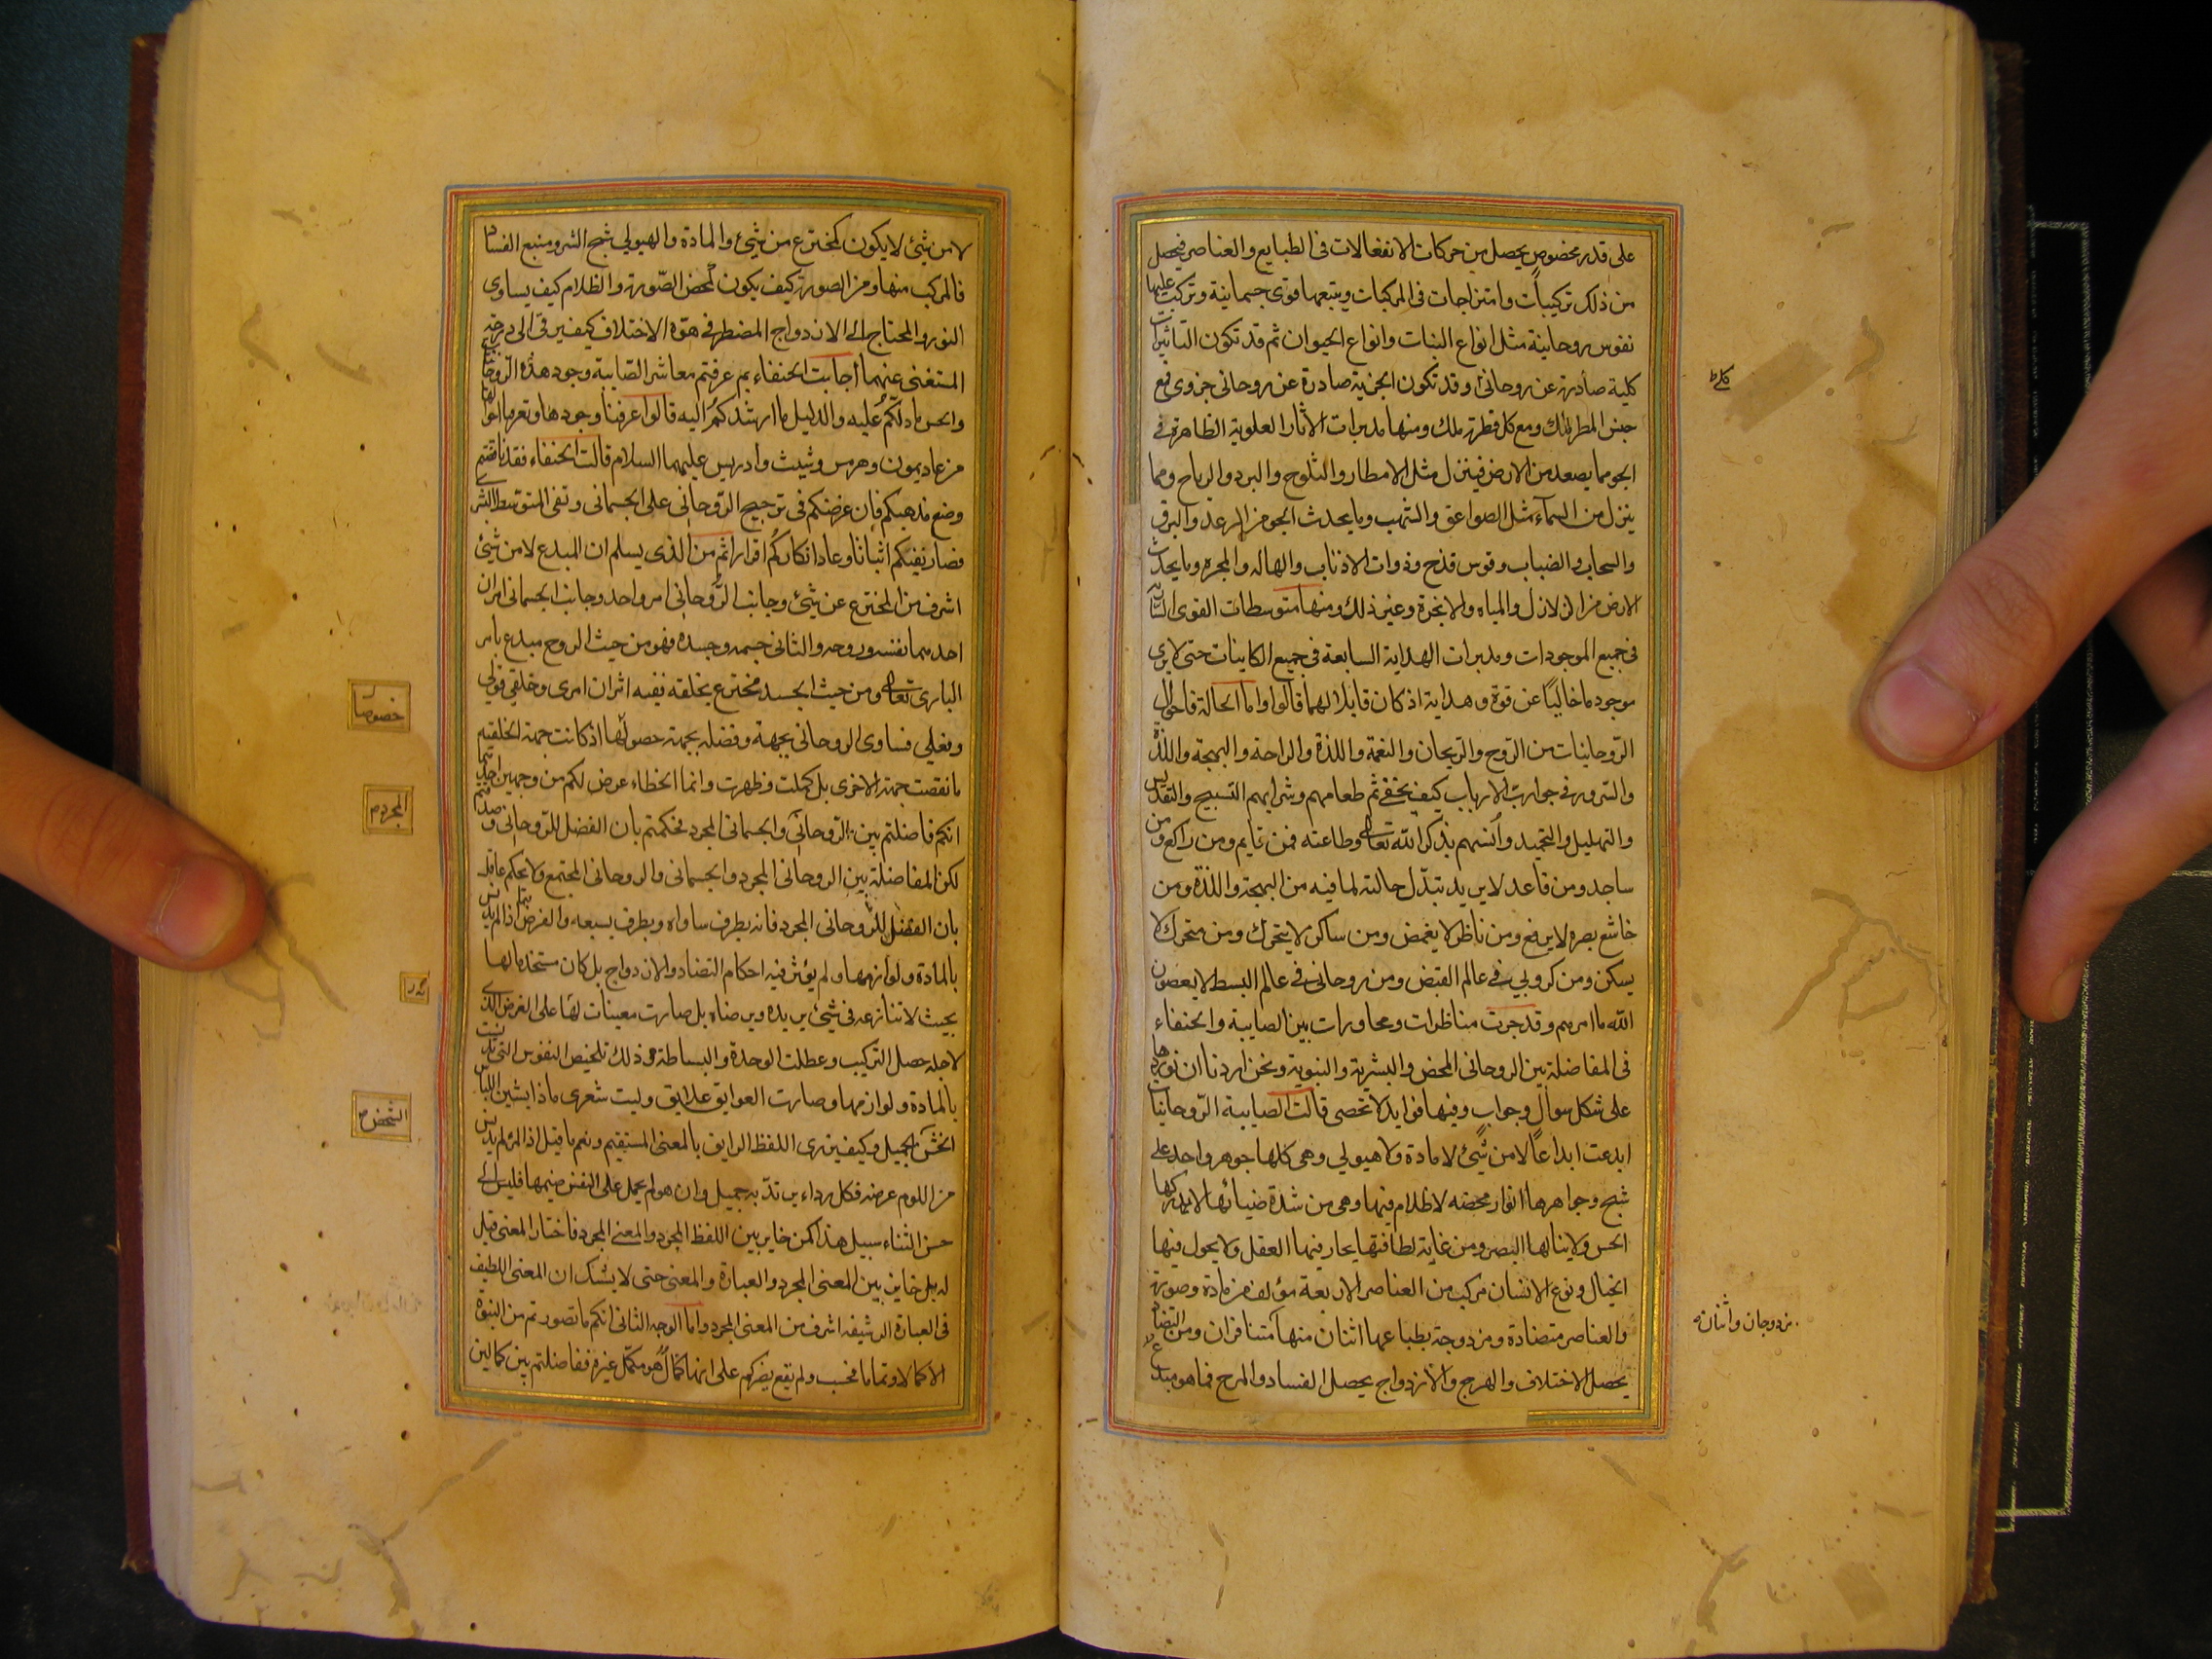 على قدر مخصوص يحصل من حركات الانفعالات فى الطبايع والعناصر فيحصل
من ذلك تركيبات وامتزاجات فى المركبات ويتبعها قوى جسمانية وتركبت عليها
نفوس روحانية مثل انواع النبات وانواع الحيوان ثم قد تكون التاثيرات
كلية صادرة عن روحانى وقد تكون الجزئية صادرة عن روحانى جزوى فمع
جنس المطر ملك ومع كل قطرة ملك ومنها مدبرات الاثار العلوية الظاهرة فى
الجو مما يصعد من الارض فينزل مثل الامطار والثلوج والبرد والرياح ومما
ينزل من السماء مثل الصواعق والشهب وما يحدث الجو من الرعد والبرق
والسحاب والضباب وقوس قدح وذوات الاذناب والهاله والمجره وما يحدث
الارض من الزلازل والمياه والابخرة وغير ذلك ومنها متوسطات القوى السارية
فى جميع الموجودات ومدبرات الهداية السابعة فى جميع الكاينات حتى لا يرى
موجود ما خاليًا عن قوة وهداية اذ كان قابلا لهما قالوا واما الحالة فاحوال
الروحانيات من الروح والريحان والنعمة واللذة والراحة والبهجة
والسرور فى جوار رب الارباب كيف يخفى ثم طعامهم وشرابهم التسبيح والتقديس
والتهليل والتحميد وأنسهم بذكر الله تعالى وطاعته فمن قايم ومن راكع ومن
ساجد ومن قاعد لا يريد تبدّل حالته لما فيه من البهجة واللذة ومن
خاشع بصره لا يرفع ومن ناظر لا يغمض ومن ساكن لا يتحرك ومن متحرك لا
يسكن ومن كروبي فى عالم القبض ومن روحانى فى عالم البسط لا يعصون
الله ما امرهم وقد جرت مناظرات ومحاورات بين الصابية والحنفاء
فى المفاضلة بين الروحانى المحض والبشرية والنبوية ونحن اردنا ان نوردها
على شكل سوال وجواب وفيها فوايد لا تحصى قالت الصابية الروحانيات
ابدعت ابداعًا لا من شئ لا مادة ولا هيولى وهى كلها جوهر واحد على
شبح وجواهرها انوار محضه لا ظلام فيها وهى من شدة ضيائها لا يدركها
الحس ولا ينالها البصر ومن غاية لطافتها يحار فيها العقل ولا يجول فيها
الخيال ونوع الانسان مركب من العناصر الاربعة مؤلف من مادة وصورة
والعناصر متضادة ومزدوجة بطباعها اثنان منها متنافران ومن التضاد
يحصل الاختلاف والهرج والازدواج يحصل الفساد والمرج فما هو مبتدع
مزدوجان واثنان
لا من شئ لا يكون كمخترع من شئ والمادة والهيولى شبح الشر ومنبع الفساد
فالمركب منها ومن الصورة كيف يكون كمحض الصّورة والظلام كيف يساوى
النور والمحتاج الى الازدواج المضطر فى هوة الاختلاف كيف يرقى الى درجة
المستغنى عنهما أجابت الحنفاء بم عرفتم معاشر الصّابية وجود هذه الروحانيات
والحس ما دلّكم عليه والدليل ما ارشدكم اليه قالوا عرفنا وجودها وتعرفنا احوالها
من عاديمون وهرمس وشيث وادريس عليهما السلام قالت الحنفاء فقد ناقضتم
وضع مذهبكم فان غرضكم فى ترجيح الرّوحانى على الجسمانى ونفى المتوسط البشرى
فصار نفيكم اثباتا وعاد انكاركم اقرارا ثم من الذى يسلم ان المبدع لا من شئ
اشرف من المخترع عن شئ وجانب الرّوحانى امر واحد وجانب الجسمانى امران
احدهما نفسه وروحه والثانى جسمه وجسده فهو من حيث الروح مبدع بامر
البارى تعالى ومن حيث الجسد مخترع بخلقه ففيه اثران امرى وخلقى قولى
وفعلى فساوى الروحانى بجهة وفضله بجهة حصولها اذ كانت جهة الخلقية
خصوصا
ما نقصت جهة الاخرى بل كملت وظهرت وانما الخطاء عرض لكم من وجهين احدهما
انكم فاضلتم بين الرّوحانى والجسمانى المجرد فحكمتم بان الفضل للرّوحانى وصدقتم
المجرد م
لكن المفاضلة بين الروحانى المجرد والجسمانى والروحانى المجتمع ولا يحكم عاقل
بان الفضل للرّوحانى المجرد فانه بطرف ساواه وبطرف سبقه والفرض اذا لم يدنس
بالمادة ولوازمها ولم يؤثر فيه احكام التضاد والازدواج بل كان مستخدما لها
بحيث لا تنازعه فى شئ يريده ويرضاه بل صارت معينات لها على الغرض الذى
لاجله حصل التركيب وعطلت الوحدة والبساطة وذلك تلخيص النفوس التى تدنست
بالمادة ولوازمها وصارت العوايق علايق وليت شعرى ماذا يشين اللباس
الخشن الجميل وكيف يزرى اللفظ الرايق بالمعنى المستقيم ونعم ما قيل اذا المرء لم يدنس
الشخص م
من اللوم عرضه فكل رداء يرتديه جميل وان هو لم يحمل على النفس ضيمها فليس الى
حسن الثناء سبيل هذا كمن خاير بين اللفظ المجرد والمعنى المجرد فاختار المعنى قيل
له بل خاير بين المعنى المجرد والعبارة والمعنى حتى لا يشك ان المعنى اللطيف
فى العبارة الرشيقه اشرف من المعنى المجرد واما الوجه الثانى انكم ما تصورتم من النبوة
الا كمالا وتماما فحسب ولم يقع بصركم على انها كمال هو مكمّل غيره ففاضلتم بين كمالين